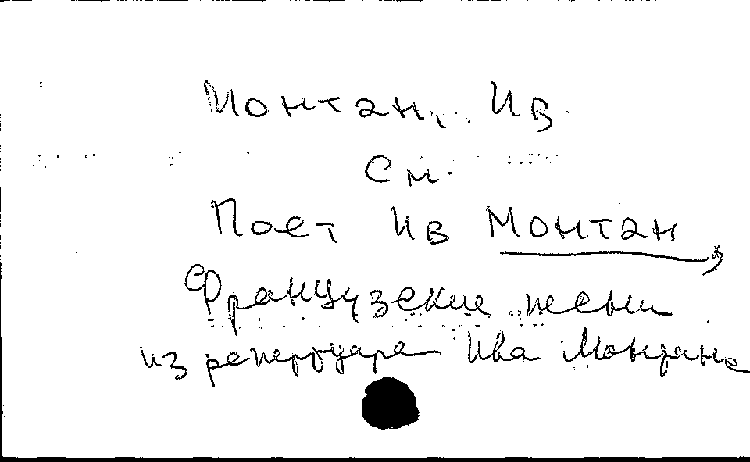 Монтан, Ив
См.
Поет Ив Монтан,
Французские песни
из репертуара Ива Монтана